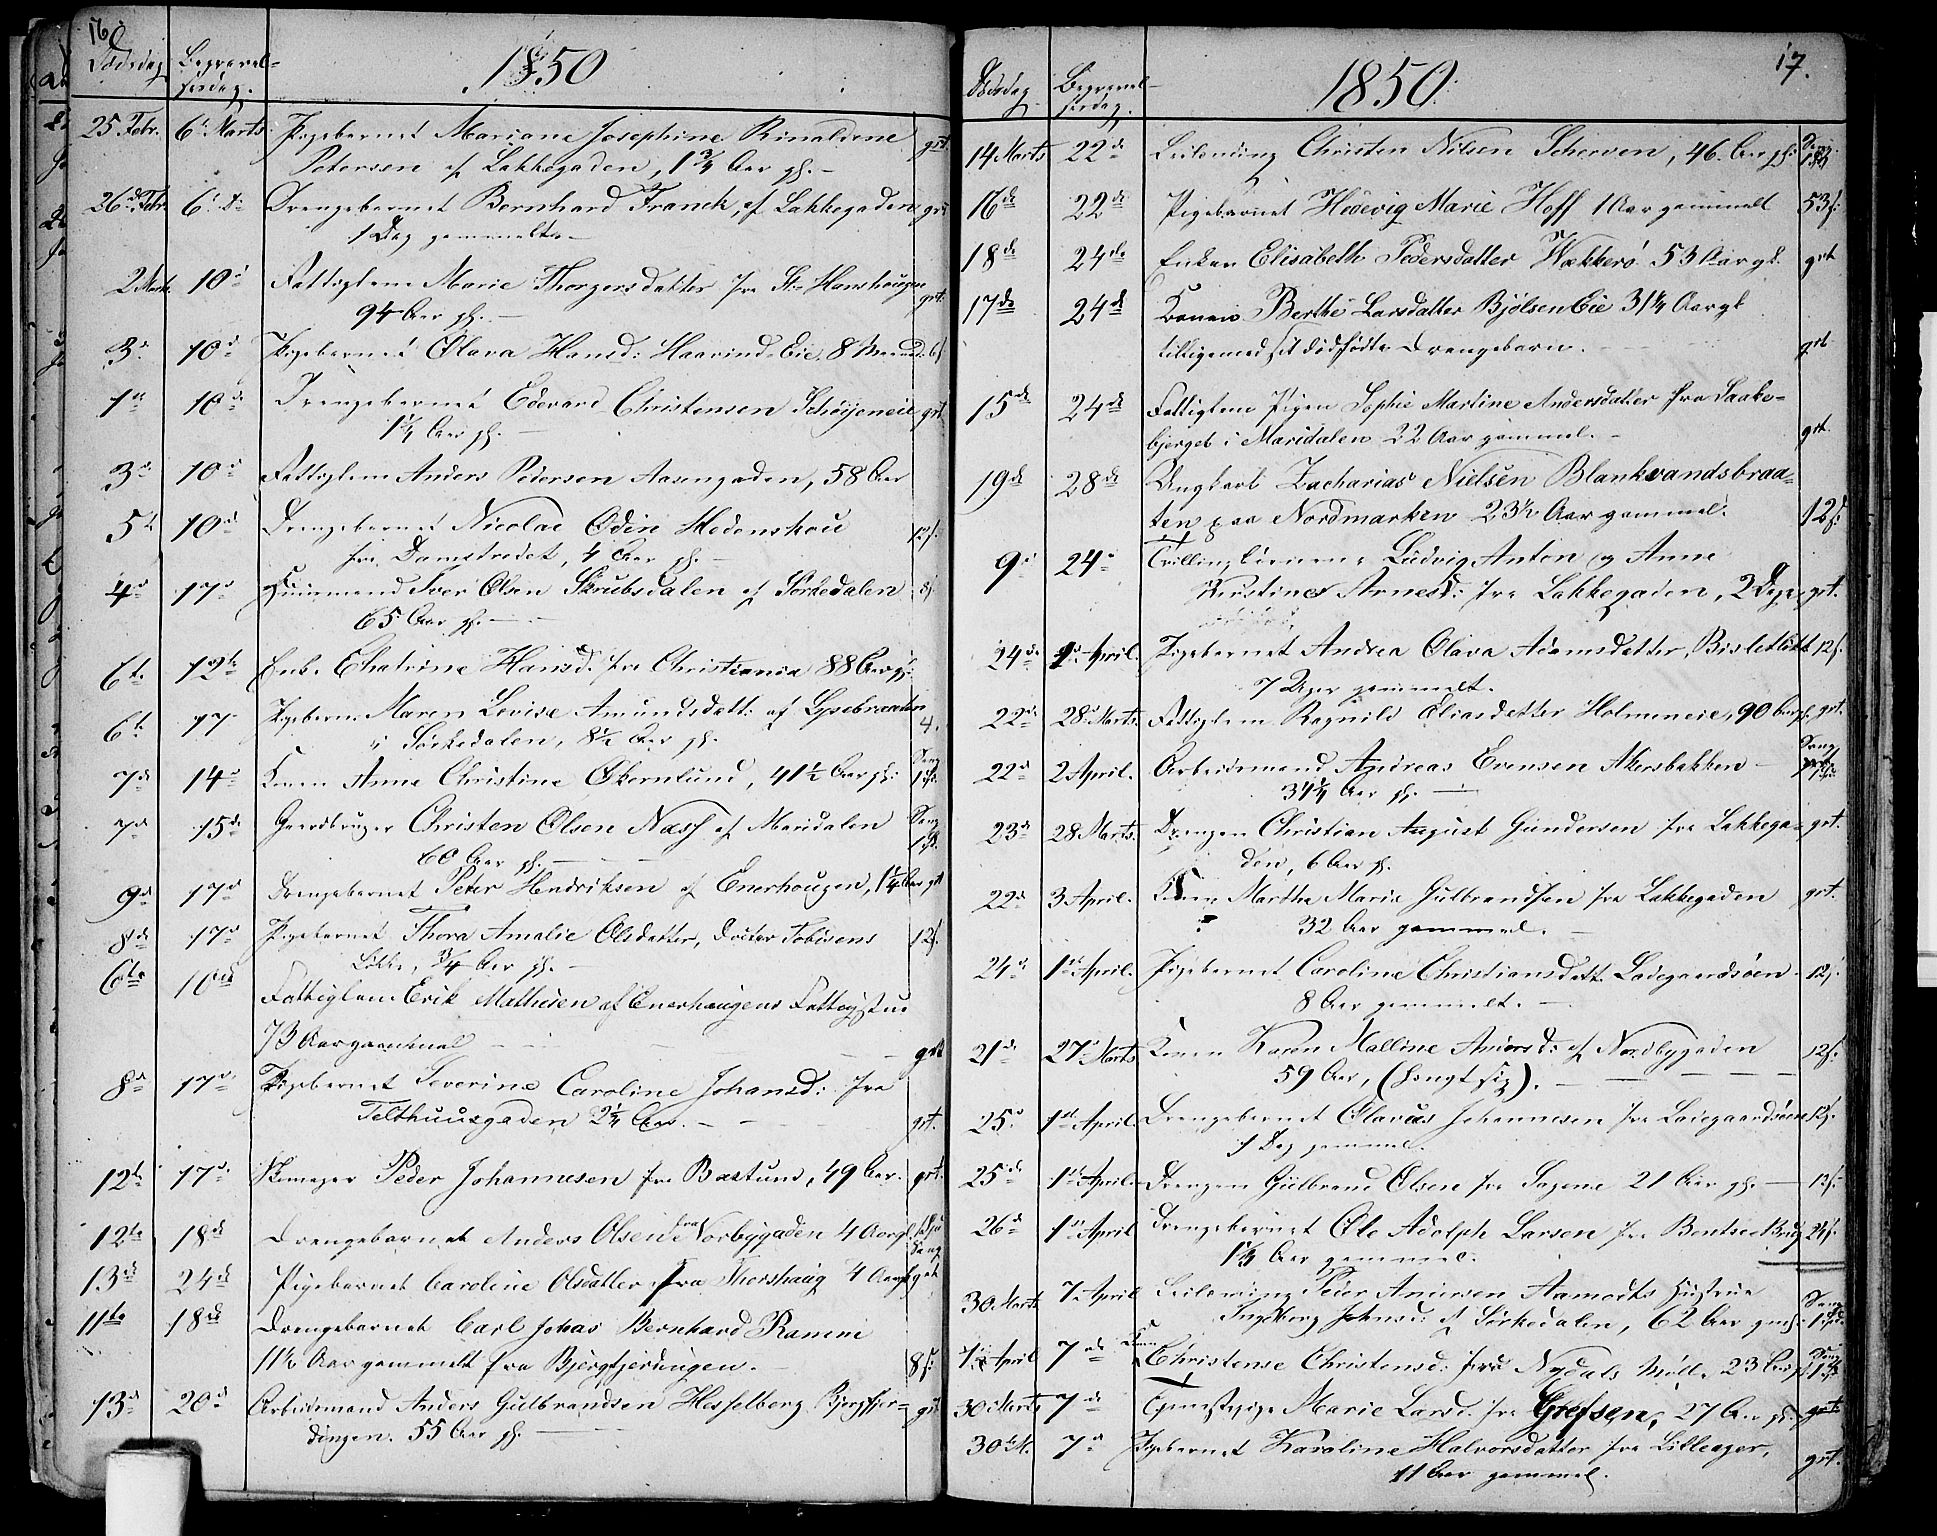 16
Dødsdag Begravel-
sesdag. 1850
25 Febr. 6t Marts. Pigebarnet Mariane Josephine Rinaldine grt.
Petersen af Lakkegaden, 1 3/4 Aar gl. –
26de Febr. 6t D: Drengebarnet Bernhard Franck, af Lakkegaden grt
1 Dag gammelt –
2 Marts. 10d Fattiglem Marie Thorgersdatter fra St. Hanshougen grt.
94 Aar gl. –
3d 10d Pigebarnet Olava Hansd: Haavind Eie, 8 Maaned:
1st 10de Drengebarnet Edevard Christensen Schøyeneie grt
1 1/4 Aar gl. –
3d 10d Fattiglem Anders Petersen Aasengaden, 58 Aar
5t 10d Drengebarnet Nicolai Odin Hedenskou 12s.
fra Damstredet, 4 Aar gl. –
4d 17d Huusmand Iver Olsen Skrubsdalen af Sørkedalen 8s
65 Aar gl. – –
6te 12te Enke Chatrine Hansd. fra Christiania 88 Aar gl:
6te 17 Pigebarn. Maren Lovise Amundsdatt: af Lysebraaten
i Sørkedalen, 8 1/2 Aar gl. 4.
7de 14d Konen Anne Christine Økernlund, 41 1/2 Aar gl: Sang
7d 15de Gaardbruger Christen Olsen Næss af Maridalen Sang
60 Aar gl. – – –
9d 17d Drengebarnet Peter Hendriksen af Enerhougen, 1 1/4 Aar grt
8de 17d Pigebarnet Thora Amalie Olsdatter, Doctor Tobiesens 12s.
Løkke, 3/4 Aar gl. –
6te 10de Fattiglem Erik Mathisen af Enerhaugens Fattigstue
73 Aar gammel – – – grt
8d 17d Pigebarnet Severine Caroline Johansd: fra
Telthuusgaden 2 1/4 Aar. – – grt.
12te 17d. Skomager Peder Johannesen fra Bakstund, 49 Aar. grt.
12te 18de Drengebarnet Anders Olsen fra Norbygaden 4 Aar gl.
Sang
13de 24de Pigebarnet Caroline Olsdatter fra Thorshaug 4 Aar gl grt
11te 18de Drengebarnet Carl Johas Bernhard Ramm
11 1/2 Aar gammelt fra Bjergfjerdingen. – 8s:
13d 20d Arbeidsmand Anders Gulbrandsen Hesselberg Bjergfjer= grt
dingen. 55 Aar gl. – –
17.
Dødsdag Begravel-
sesdag. 1850.
14 Marts 22de Leilending Christen Nilsen Scherven, 46 Aar gl:
16de 22de Pigebarnet Hedevig Marie Hoff 1 Aar gammelt 53s:
18de 24de Enken Elisabeth Pedersdatter Wækkerö 53 Aar gl. grt
17de 24d Konen Berthe Larsdatter Bjölsen Eie 31 1/4 Aar gl
tilligemed sit dødfødte Drengebarn. – grt
15de 24de Fattiglem Pigen Sophie Martine Andersdatter fra Skake-
bjerget i Maridalen 22 Aar gammel. – grt
19de 28de Ungkarl Zacharias Nielsen Blankvandsbraa-
ten paa Nordmarken 23 1/2 Aar gammel. 12s:
9d 24d Tvillingbørnene Ludvig Anton og Anne
Kirstine Arnesd: fra Lakkegaden, 2 Dage grt.
24de 1st April. Pigebarnet Andrea Olava Adamsdatter, Bisletløkk 12s.
7 Uger gammelt.
22d 28d Marts. Fattiglem Ragnild Eliasdatter Holmeneie, 90 Aar gl. grt.
22d 2 April. Arbeidsmand Andreas Evensen Akersbakken – Sang
31 1/4 Aar gl. –
23d 28 Marts. Drengen Christian August Gundersen fra Lakkega= grt.
den, 6 Aar gl.
22d 3 April. Konen Marthe Marie Gulbrandsen fra Lakkegaden grt.
32 Aar gammel. –
24d 1st April. Pigebarnet Caroline Christiansdatt. Ladegaardsøen. 12s:
8 Aar gammelt. –
21d 27d Marts Konen Karen Malline Andersd: af Nordbygaden 12s:
59 Aar, (hængt sig). – – –
25d 1st April. Drengebarnet Olavus Johannesen fra Ladegaardsøen 12s.
1 Dag gammel.
25de 1st April. Drengen Gulbrand Olsen fra Sagene 21 Aar gl. – 13s:
26d 1st April Drengebarnet Ole Adolph Larsen fra Bentse Brug 24s.
1 1/3 Aar gammel.
30. Marts 7. April Leilending Peder Andersen Aamodts Hustrue
Ingeborg Johnsd: af Sørkedalen, 62 Aar gml: Sang
1st April 7de Kone Christense Christensd: fra Nydals Mølle 23 Aar gl
30 Marts 7de Tjenestepige Marie Larsd. fra Grefsen, 27 Aar gl. grt.
30 M. 7d Pigebarnet Karoline Halvorsdatter fra Lilleager,
11 Aar gammel. grt.